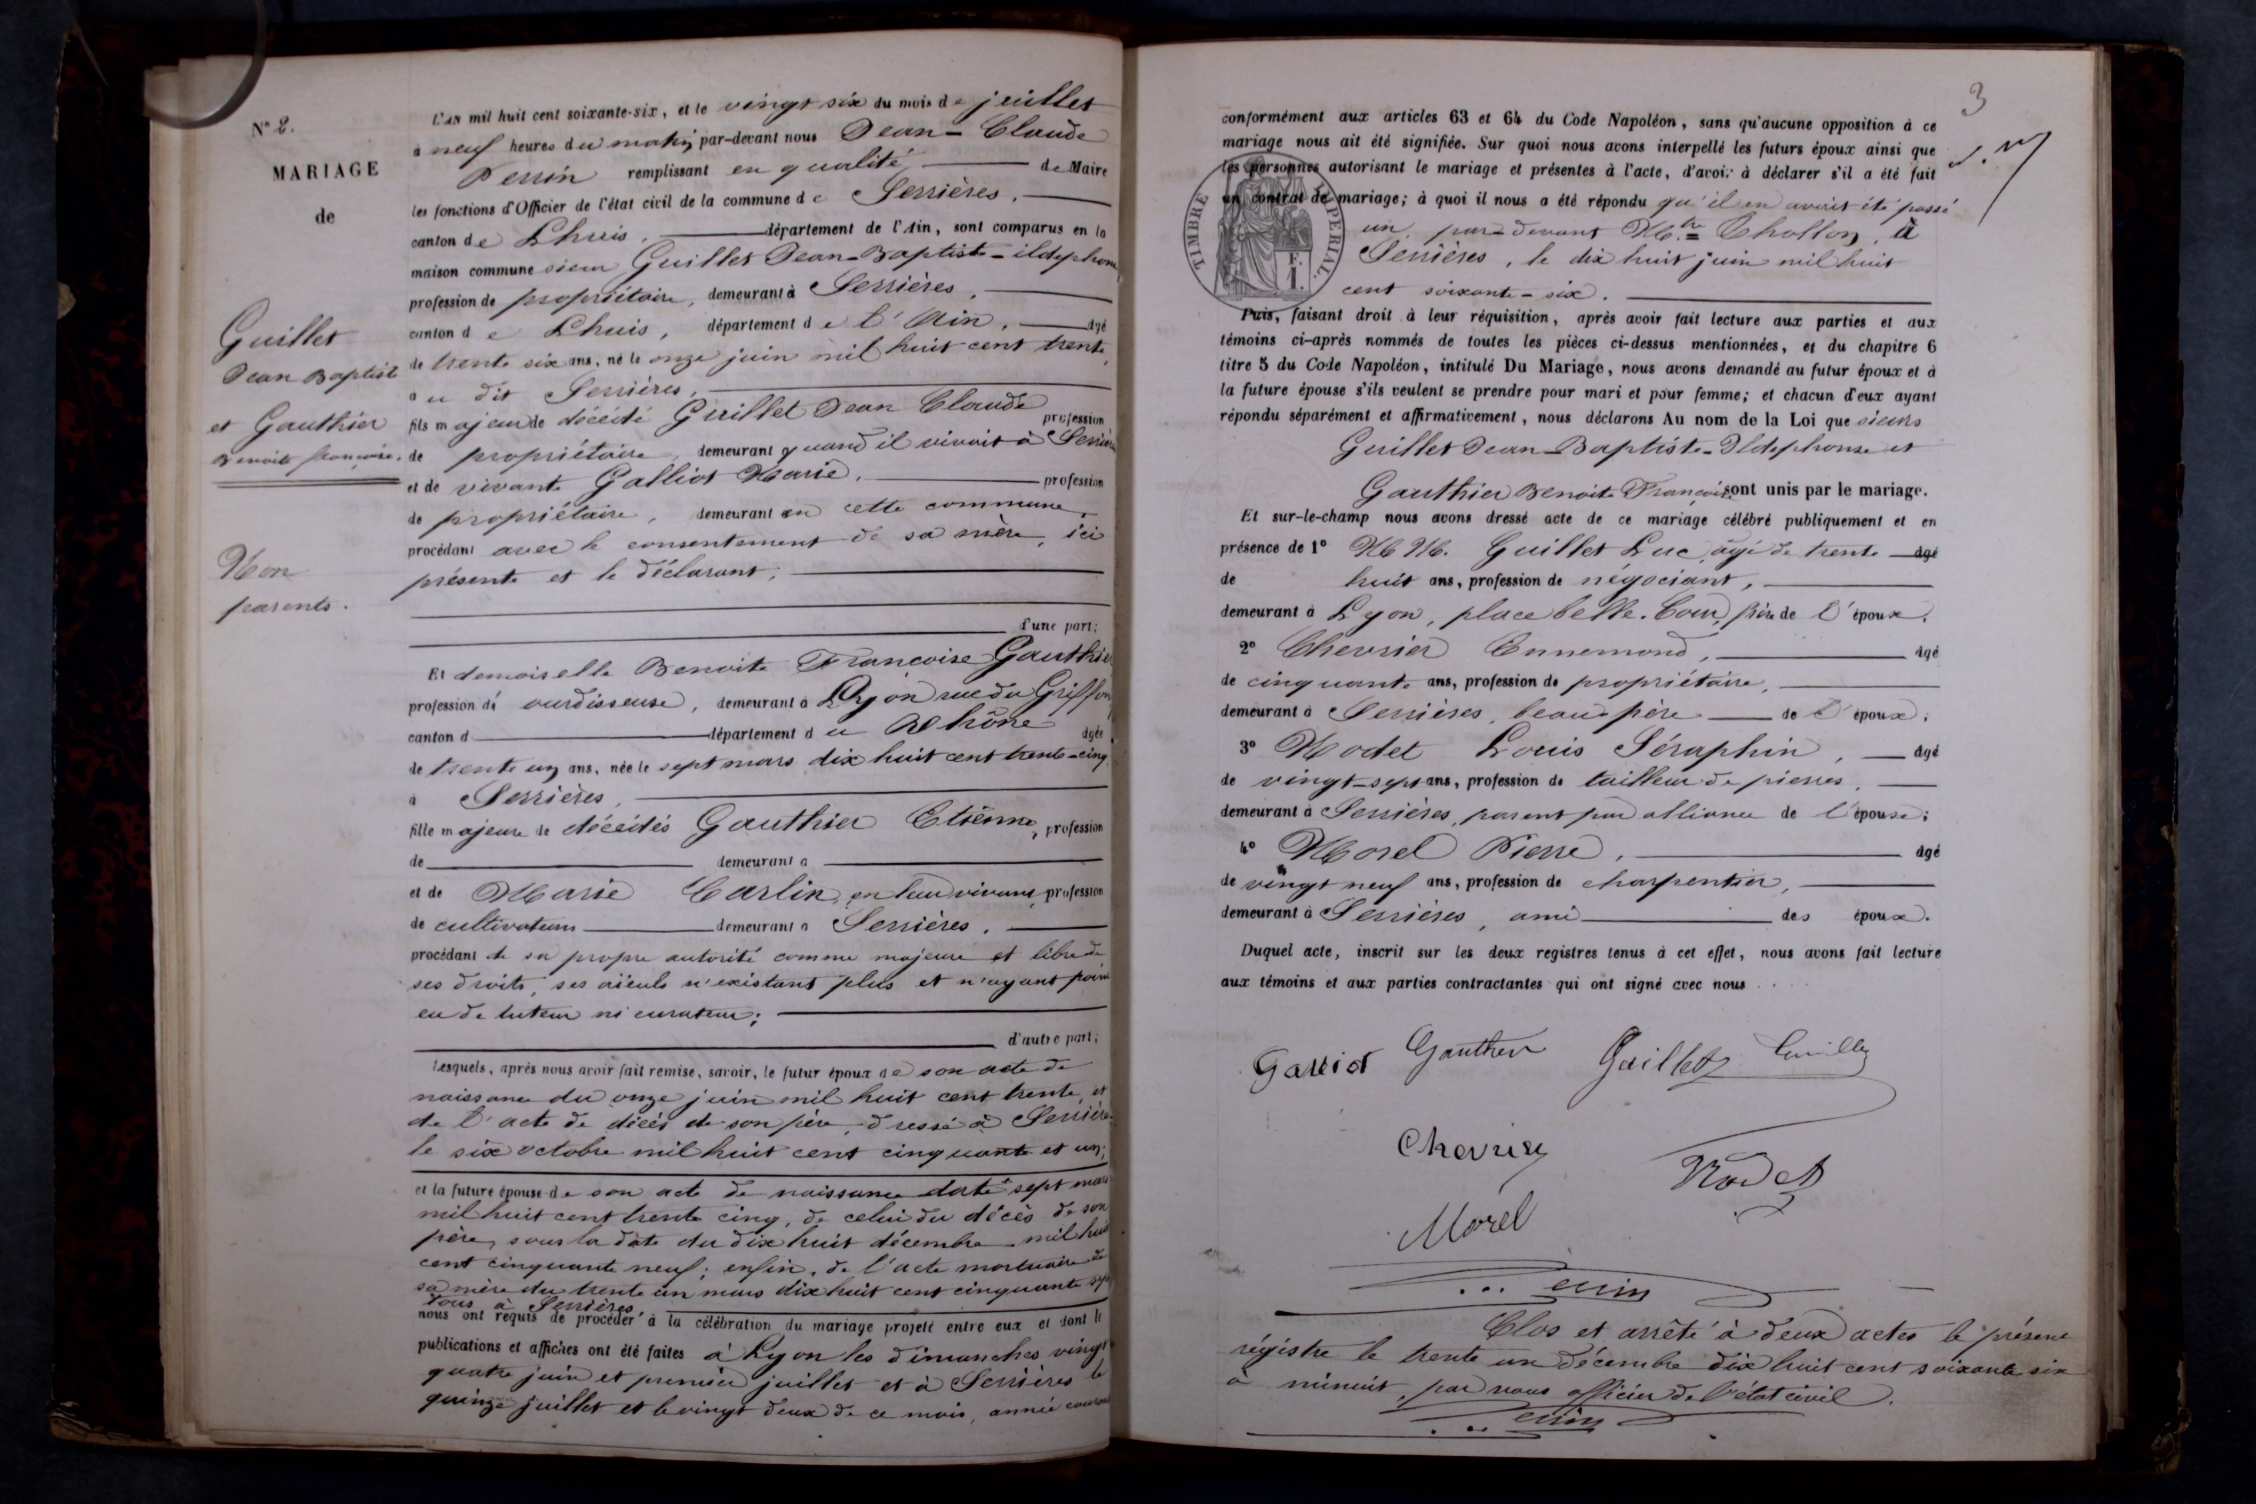 N° 2.
MARIAGE
de
Guillet
Jean Baptist
et Gauthier
Benoite françoise.
Non
parents.
L'AN mil huit cent soixante-six, et le vingt six du mois de juillet
à neuf heures du matin par-devant nous Jean-Claude
Perrin remplissant en qualité de Maire
les fonctions d'Officier de l'état civil de la commune de Serrières,
canton de Lhuis, département de l'Ain, sont comparus en la
maison commune sieur Guillet Jean-Baptiste-ildephonse
profession de propriétaire, demeurant à Serrières,
canton de Lhuis, département de l'Ain, âgé
de trente six ans, né le onze juin mil huit cent trente,
au dit Serrières,
fils majeur de décédé Guillet Jean Claude profession
de propriétaire, demeurant quand il vivait à Serrières
et de vivante Galliot Marie, profession
de propriétaire, demeurant en cette commune,
procédant avec le consentement de sa mère, ici
présente et le déclarant;
d'une part;
Et demoiselle Benoite Francoise Gauthier
profession de ourdisseuse, demeurant à Lyon rue du Griffon
canton d département du Rhône âgée
de trente un ans, née le sept mars dix huit cent trente-cinq
à Serrières,
fille majeure de décédés Gauthier Etienne, profession
de demeurant à
et de Marie Carlin, en leur vivant profession
de cultivateurs demeurant à Serrières,
procédant de sa propre autorité comme majeure et libre de
ses droits, ses aïeuls n'existant plus et n'ayant point
eu de tuteur ni curateur;
d'autre part;
Lesquels, après nous avoir fait remise, savoir, le futur époux de son acte de
naissance du onze juin mil huit cent trente, et
de l'acte de décès de son père, dressé à Serrières
le six octobre mil huit cent cinquante et un;
et la future épouse de son acte de naissance daté sept mars
mil huit cent trente cinq, de celui du décès de son
père, sous la date du dix huit décembre mil huit
cent cinquante neuf; enfin, de l'acte mortuaire de
sa mère du trente un mars dix huit cent cinquante sept
tous à Serrières,
nous ont requis de procéder à la célébration du mariage projeté entre eux et dont les
publications et affiches ont été faites à Lyon les dimanches vingt
quatre juin et premier juillet et à Serrières le
quinze juillet et le vingt deux de ce mois, année courant
3
conformément aux articles 63 et 64 du Code Napoléon, sans qu'aucune opposition à ce
mariage nous ait été signifiée. Sur quoi nous avons interpellé les futurs époux ainsi que
les personnes autorisant le mariage et présentes à l'acte, d'avoir à déclarer s'il a été fait
un contrat de mariage; à quoi il nous a été répondu qu'il en avait été passé
un, par-devant Mtre Thollon, à
Serrières, le dix huit juin mil huit
cent soixante-six.
TIMBRE IMPERIAL.
F.
1.
Puis, faisant droit à leur réquisition, après avoir fait lecture aux parties et aux
témoins ci-après nommés de toutes les pièces ci-dessus mentionnées, et du chapitre 6
titre 5 du Code Napoléon, intitulé Du Mariage, nous avons demandé au futur époux et à
la future épouse s'ils veulent se prendre pour mari et pour femme; et chacun d'eux ayant
répondu séparément et affirmativement, nous déclarons Au nom de la Loi que sieurs
Guillet Jean-Baptiste-Ildephonse et
Gauthier Benoite Françoise sont unis par le mariage.
Et sur-le-champ nous avons dressé acte de ce mariage célébré publiquement et en
présence de 1° MM. Guillet Luc, âgé de trente âgé
de huit ans, profession de négociant,
demeurant à Lyon, place belle-Cour, frère de l'époux.
2° Chevrier Ennemond, âgé
de cinquante ans, profession de propriétaire,
demeurant à Serrières, beau père de l'époux;
3° Rodet Louis Séraphin, âgé
de vingt-sept ans, profession de tailleur de pierres,
demeurant à Serrières, parent par alliance de l'épouse;
4° Morel Pierre, âgé
de vingt neuf ans, profession de charpentier,
demeurant à Serrières, ami des époux.
Duquel acte, inscrit sur les deux registres tenus à cet effet, nous avons fait lecture
aux témoins et aux parties contractantes qui ont signé avec nous
Galliot Gauthier Guillet
Chevrier Rodet
Morel
Perrin
Clos et arrêté à deux actes le présent
régistre le trente un décembre dix huit cent soixante six
à minuit, par nous officier de l'état civil.
Perrin